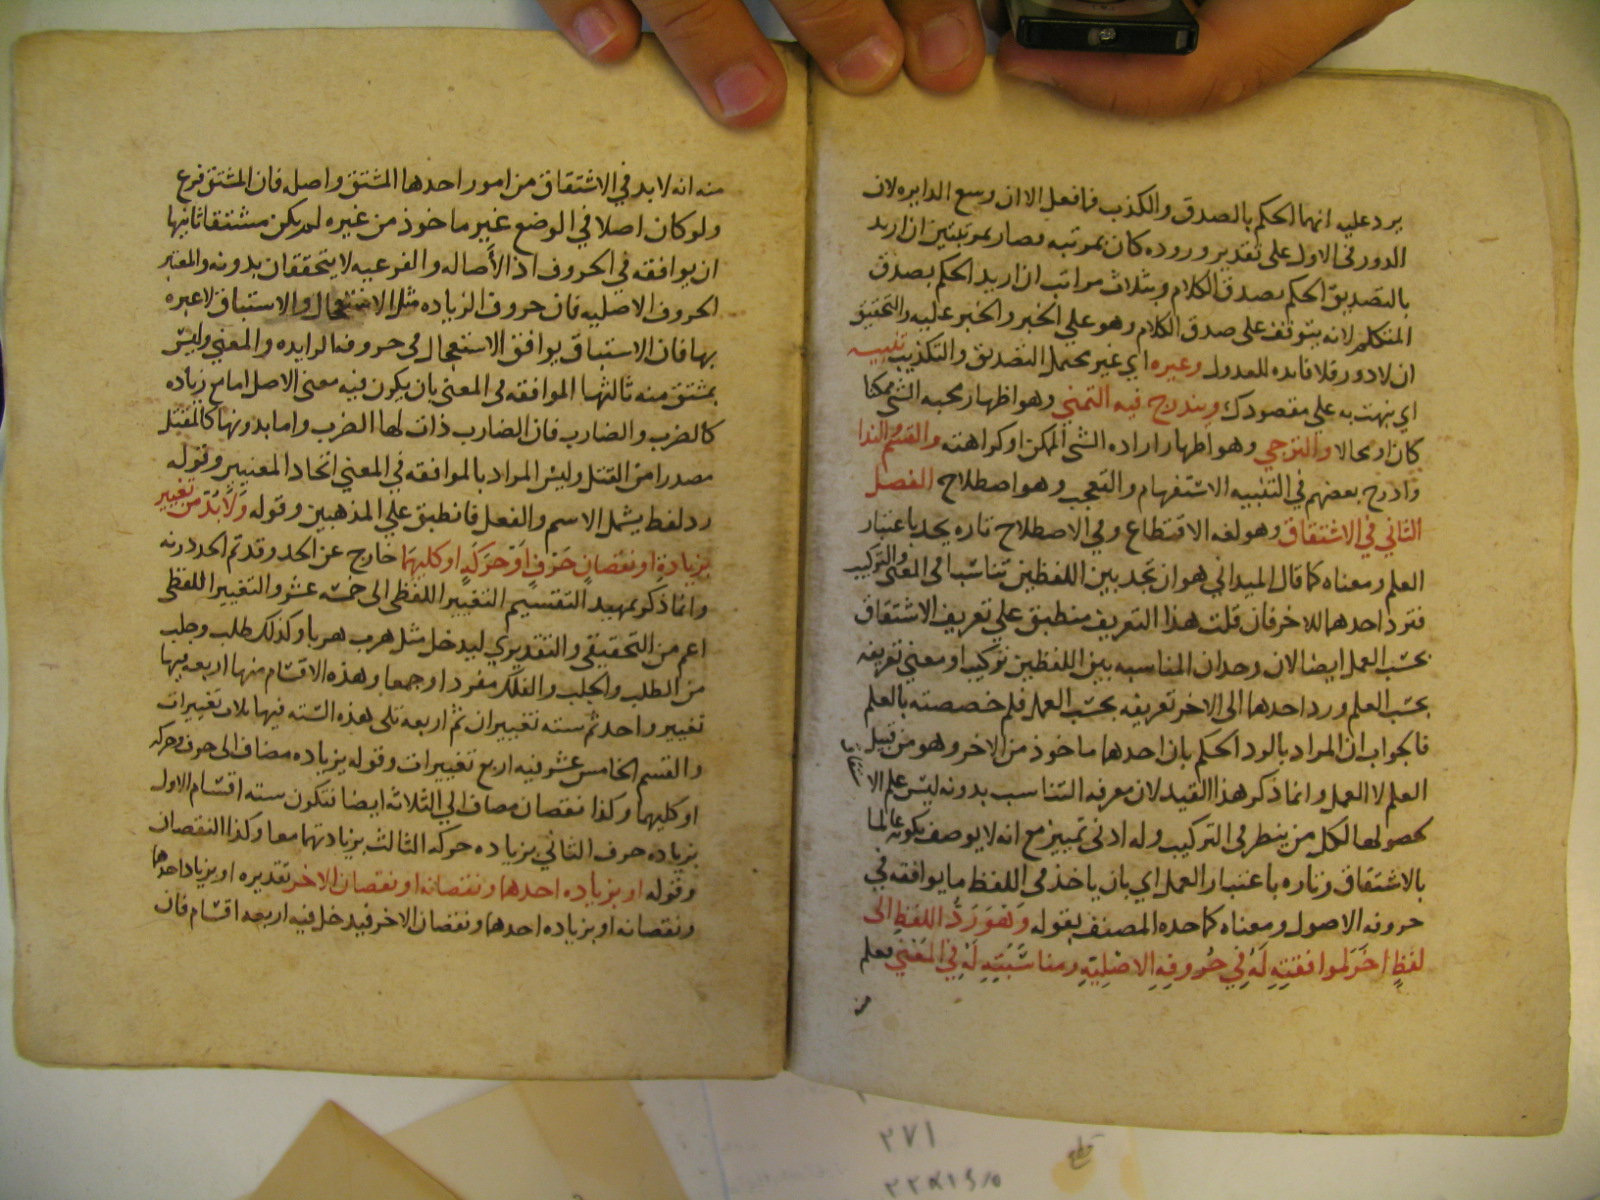 يرد عليه انهما الحكم بالصدق والكذب فما فعل الا ان وسع الدايره لان
الدور في الاول على تقدير وروده كان بمرتبه فصار بمرتبتين ان اريد
بالتصديق الحكم بصدق الكلام وبثلاث مراتب ان اريد الحكم بصدق
المتكلم لانه يتوقف على صدق الكلام وهو علي الخبر والخبر عليه والتحقيق
ان لا دور فلا فايده للعدول وغيره اي غير محتمل التصديق والتكذيب تنبيه
اي نبهت به على مقصودك ويندرج فيه التمني وهو اظهار محبه الشي ممكنا
كان او محالا والترجي وهو اظهار اراده الشي الممكن او كراهته والقسم والندا
وادرج بعضهم في التنبيه الاستفهام والتعجب وهو اصطلاح الفصل
الثاني في الاشتقاق وهو لغه الاقتطاع وفي الاصطلاح تاره يحد باعتبار
العلم ومعناه كما قال الميداني هو ان تجد بين اللفظين تناسبا في المعنى والتركيب
فترد احدهما للاخر فان قلت هذا التعريف منطبق علي تعريف الاشتقاق
بحسب العمل ايضا لان وجدان المناسبه بين اللفظين تركيبا ومعني تعريفه
بحسب العلم ورد احدهما الى الاخر تعريفه بحسب العمل فلم خصصته بالعلم
فالجواب ان المراد بالرد الحكم بان احدهما ماخوذ من الاخر وهو من قبيل
العلم لا العمل وانما ذكر هذا القيد لان معرفه التناسب بدونه ليس علم الاشتقاق
لحصولها لكل من ينظر في التركيب وله ادنى تمييز مع انه لا يوصف بكونه عالما
بالاشتقاق وتاره باعتبار العمل اي بان ياخذ من اللفظ ما يوافقه في
حروفه الاصول ومعناه كما حده المصنف بقوله وَهُوَ رَدُّ اللفظِ الى
لفظٍ اخَرَ لموافقتِهِ لَهُ في حُروفِهِ الاصليّهِ ومناسَبَتِهِ لَهُ في المَعْني يعلم
من
منه انه لا بد في الاشتقاق من امور احدها المشتق واصل فان المشتق فرع
ولو كان اصلا في الوضع غير ماخوذ من غيره لم يكن مشتقا ثانيها
ان يوافقه في الحروف اذ الأصاله والفرعيه لا يتحققان بدونه والمعتبر
الحروف الاصليه فان حروف الزياده مثل الاستعجال والاستباق لا عبره
بها فان الاستباق يوافق الاستعجال في حروفه الزايده والمعني وليس
بمشتق منه ثالثها الموافقه في المعني بان يكون فيه معنى الاصل اما مع زياده
كالضرب والضارب فان الضارب ذات لها الضرب واما بدونها كالمقتل
مصدرا من القتل وليس المراد بالموافقه في المعني اتحاد المعنيين وقوله
رد لفظ يشمل الاسم والفعل فانطبق علي المذهبين وقوله وَلَابُدَّ من تغيير
بزيادةٍ او نقصانِ حَرْفٍ اَوْ حَرَكَةٍ او كليهما خارج عن الحد وقد تم الحد دونه
وانما ذكر تمهيد التقسيم التغيير اللفظي الى خمسه عشر والتغيير اللفظي
اعم من التحقيقي والتقديري ليدخل مثل هرب هربا وكذلك طلب وجلب
من الطلب والجلب والفلك مفردا وجمعا وهذه الاقسام منها اربعه فيها
تغيير واحد ثم سته تغييران ثم اربعه تلي هذه السته فيها ثلاث تغييرات
والقسم الخامس عشر فيه اربع تغييرات وقوله بزياده مضاف الى حرف وحركه
او كليهما وكذا نقصان مضاف الي الثلاثه ايضا فتكون سته اقسام الاول
بزياده حرف الثاني بزياده حركه الثالث بزيادتهما معا وكذا النقصان
وقوله او بزياده احدهما ونقصانه او نقصان الاخر تقديره او بزياده احدهما
ونقصانه او بزياده احدهما ونقصان الاخر فيدخل فيه اربعه اقسام فان
٢٧١